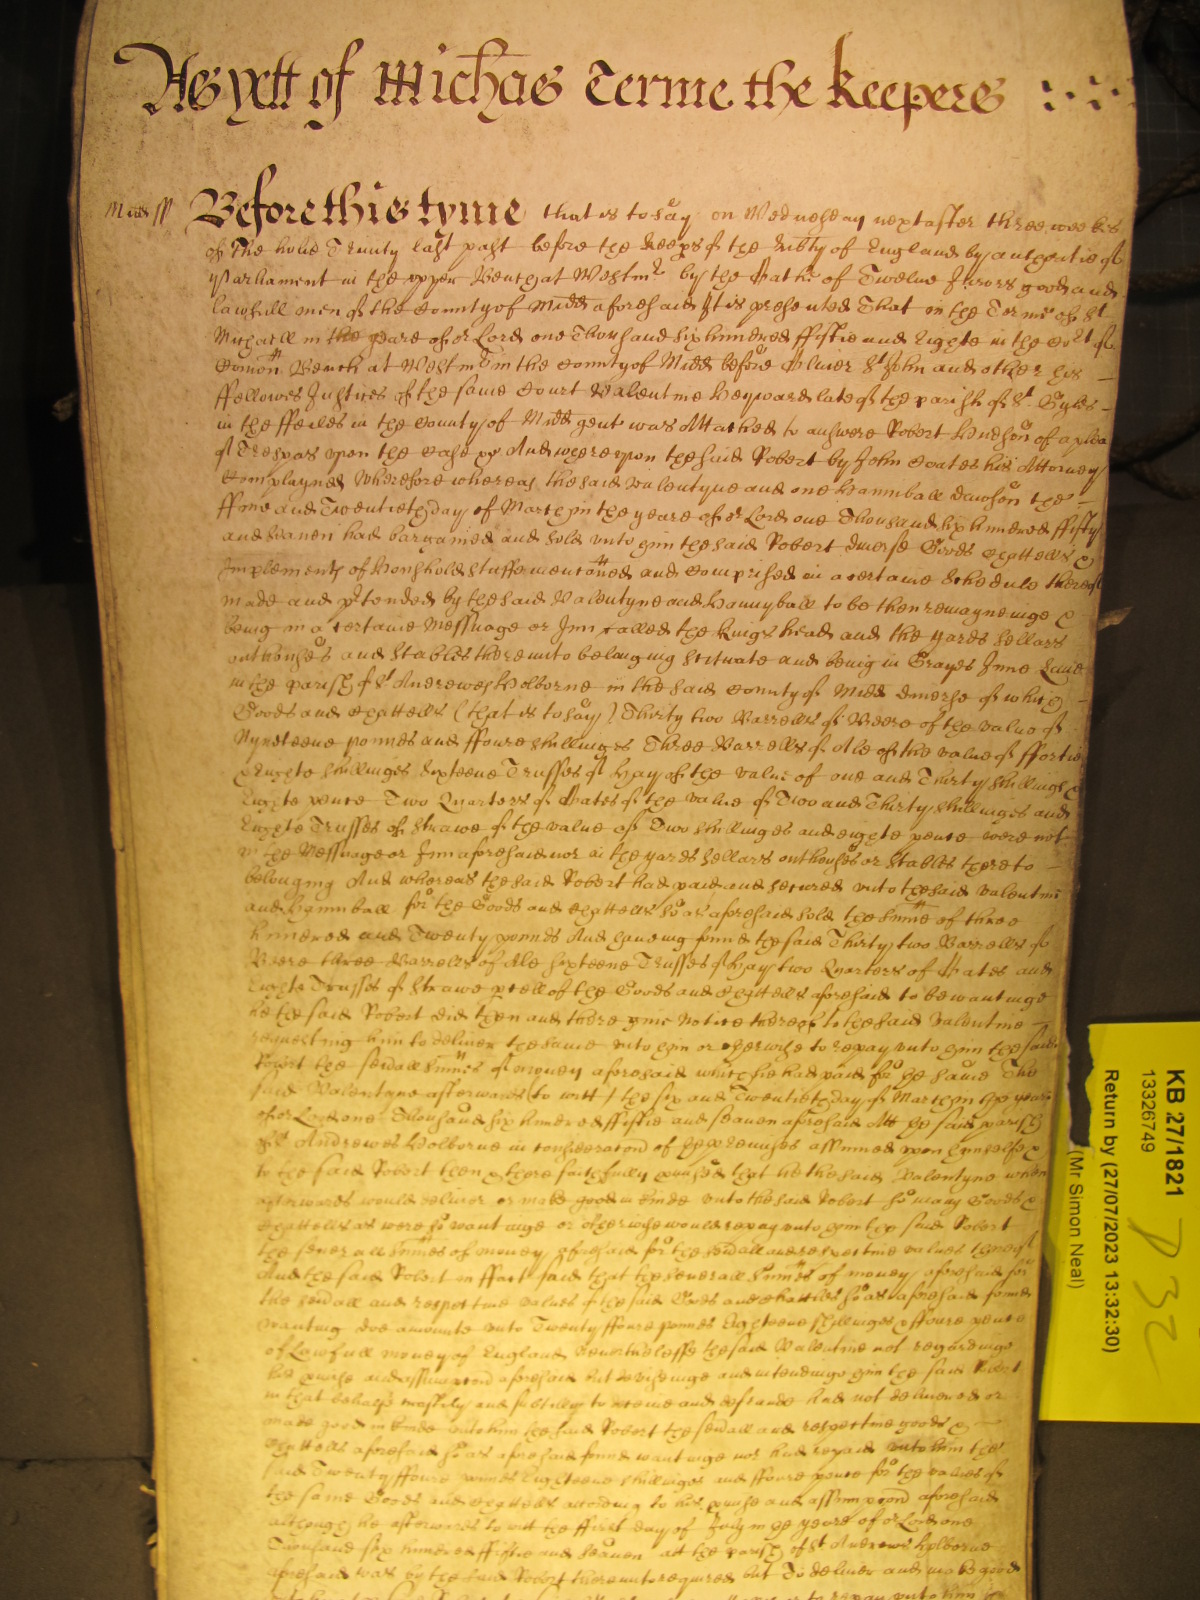 As yett of Michas Terme the keepers
Midd ss Before this tyme that is to say on Wednesday next after three weekes
of the holie Trinity last past before the keeps of the libty of England by authoritie of
Parliament in the upper Bench at Westmr by the Oathe of Twelve Jurors good and
lawfull men of the County of Midd aforesaid It is presented That in the Terme of St
Michaell in the yeare of or Lord one Thousand six hundred fiftie and Eighte in the Cort of
Comon Bench at Westmr in the County of Midd before Oliver St John and other his
ffellowes Justices of the same Court Valentine Heyward late of the parish of St Gyles
in the ffeilds in the County of Midd gent was Attached to answere Robert Hudson of a plea
of Trespas upon the Case &c And whereupon the said Robert by John Coates his Attorney
Complayned Wherefore whereas the said Valentyne and one Hanniball Dawson the
ffive and Twentieth day of March in the yeare of or Lord one Thousand six hundred ffifty
and Seaven had bargained and sold unto him the said Robert diverse Goods Chattells &
Implements of Houshold stuffe mentoned and Comprised in a certaine Schedule thereof
made and ptended by the said Valentyne and Hannyball to be then remayneinge &
being in a certaine Messuage or Inn called the kings head and the yards sellars
outhouses and stables thereunto belonging scituate and being in Grayes Inne Lane
in the parish of St Andrewes Holborne in the said County of Midd diverse of which
Goods and Chattells (that is to say) Thirty two Barrells of Beere of the value of
Nyneteene pounds and ffoure shillinges Three Barrells of Ale of the value of ffortie
& Eighte shillings Sixteene Trusses of Hay of the value of one and Thirty shillings &
Eighte pence Two Quarters of Oates of the value of Two and Thirty shillinges and
Eighte Trusses of Strawe of the value of Two shillinges and eighte pence were not
in the Messuage or Inn aforesaid nor in the yards sellars outhouses or stables thereto
belonging And whereas the said Robert had paid and secured unto the said Valentine
and Hanniball for the Goods and Chattells so as aforesaid sold the sume of three
hundred and Twenty pounds And haveing found the said Thirty two Barrells of
Beere three Barrells of Ale sixteene Trusses of Hay two Quarters of Oates and
Eighte Trusses of Strawe pcell of the Goods and Chattells aforesaid to be wantinge
he the said Robert did then and there give notice thereof to the said Valentine
requesting him to deliver the same unto him or otherwise to repay unto him the said
Robert the sevall sumes of money aforesaid which he had paid for the same The
said Valentyne afterwards (to witt) the six and Twentieth day of March in the yeare
of or Lord one Thousand six hundred ffiftie and seaven aforesaid Att the said parish
of St Andrewes Holborne in consideracon of the premises assumed upon himselfe &
to the said Robert then & there faithfully pmised that he the said Valentyne when
afterwards would deliver or make good in kinde unto the said Robert so many Goods &
Chattells as were so wantinge or otherwise would repay unto him the said Robert
the severall sumes of money aforesaid for the sevall and respective values thereof
And the said Robert in ffact saith that the severall sumes of money aforesaid for
the sevall and respective values of the said Goods and Chattells so as aforesaid found
wanting doe amounte unto Twenty ffoure pounds Eighteene shillinges & ffoure pence
of Lawfull money of England Neverthelesse the said Valentine not regardinge
his pmise and assumpcon aforesaid but deviseinge and intendinge him the said Robert
in that behalfe craftily and subtilly to deceive and defraude had not delivered or
made good in kinde unto him the said Robert the sevall and respective goods &
Chattells aforesaid so as aforesaid found wantinge nor had repaid unto him the
said Twenty ffoure pounds Eighteene shillinges and ffoure pence for the values of
the same Goods and Chattells according to his pmise and assumpcon aforesaid
although he afterwards to witt the ffirst day of July in the yeare of or Lord one
Thousand six hundred ffiftie and seaven att the parish of St Andrews Holborne
aforesaid was by the said Robert thereunto required but To deliver and make good
KB 27/1821
13326749
Return by (27/07/2023 13:32:30)
(Mr Simon Neal)
D 32